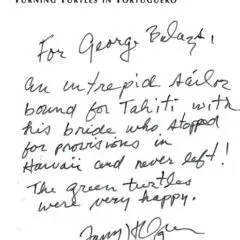 TURNING TURTLES IN TORTUGUERO
For George Balazs,
An intrepid sailor
bound for Tahiti with
his bride who stopped
for provisions in
Hawaii and never left!
The green turtles
were very happy.